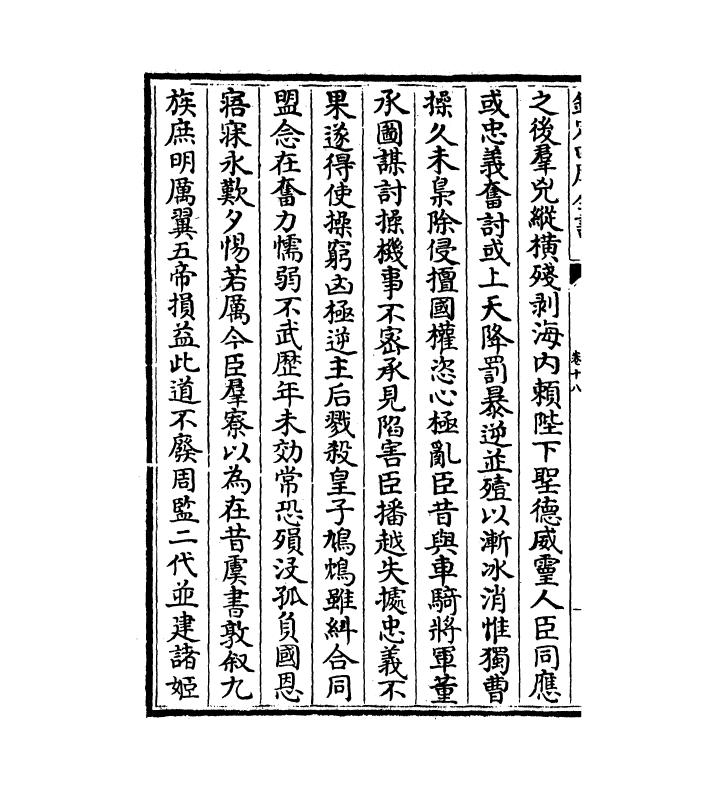 之後羣兇縱横殘剥海内頼陛下聖德威靈人臣同應
或忠義奮討或上天降罰暴逆並殪以漸冰消惟獨曹
操久未梟除侵擅國權恣心極亂臣昔與車騎將軍董
承圖謀討操機事不宻承見陷害臣播越失據忠義不
果遂得使操窮凶極逆主后戮殺皇子鴆鴆雖糾合同
盟念在奮力懦弱不武歴年未効常恐殞没孤負國恩
寤寐永歎夕惕若厲今臣羣寮以為在昔虞書敦叙九
族庶明厲翼五帝損益此道不廢周監二代並建諸姬
卷十八